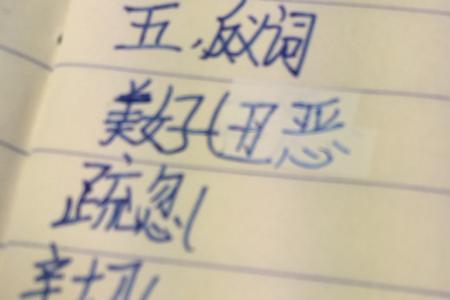 五、反义词
美好(丑恶
疏忽(